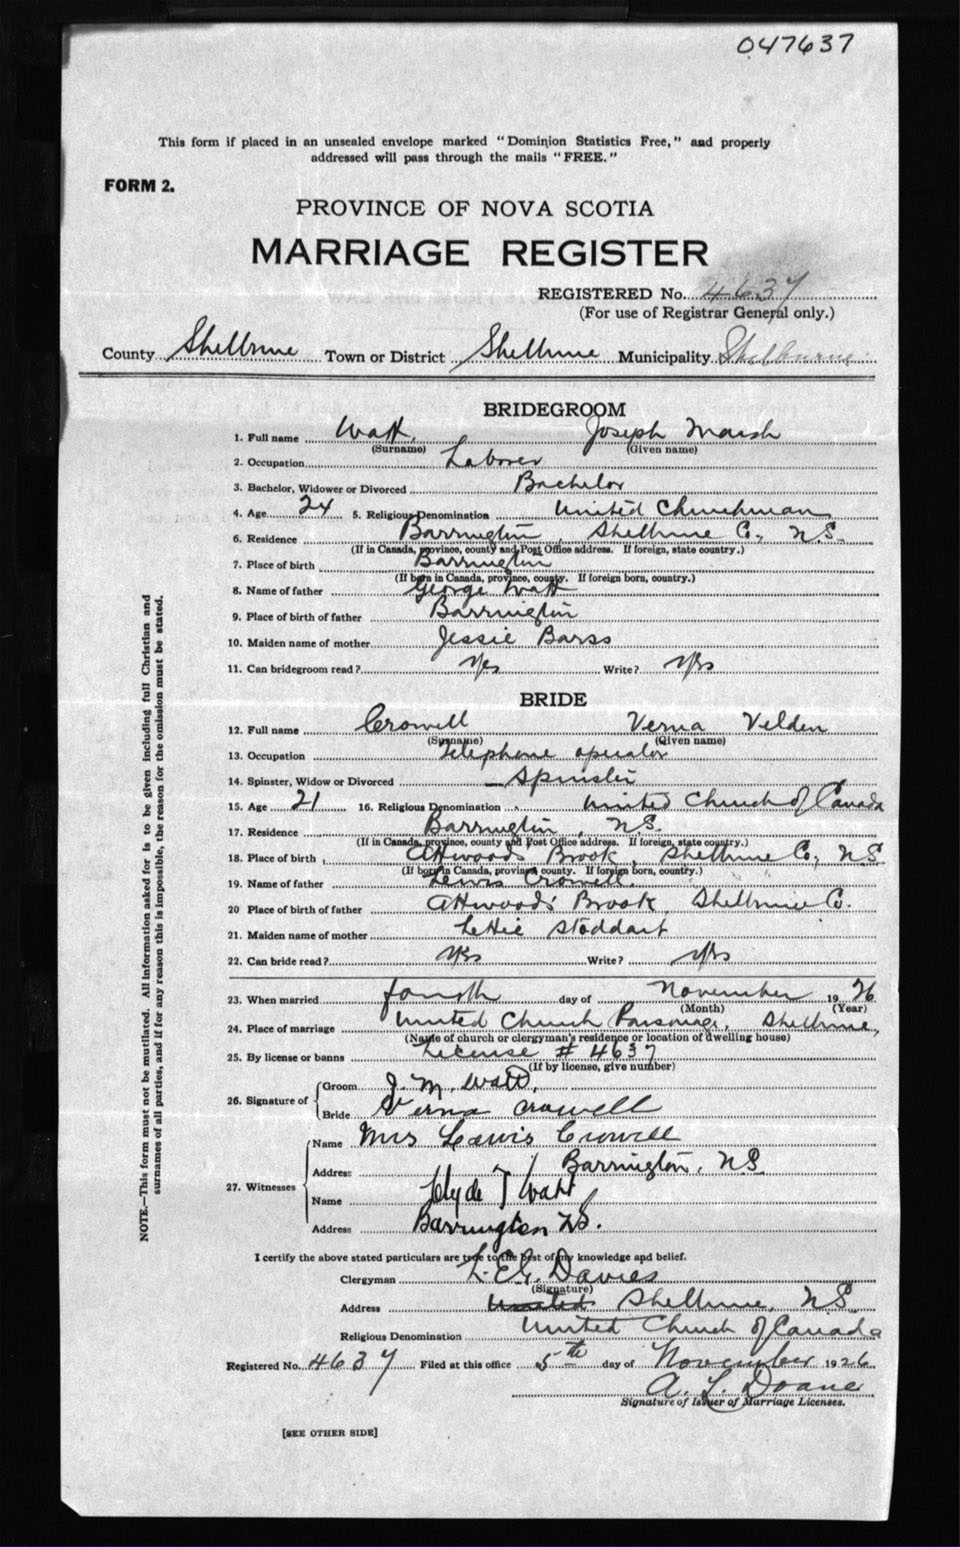 047637
This form if placed in an unsealed envelope marked "Dominion Statistics Free," and properly
addressed will pass through the mails "FREE."
FORM 2.
PROVINCE OF NOVA SCOTIA
MARRIAGE REGISTER
REGISTERED No. 4637
(For use of Registrar General only.)
County Shelburne Town or District Shelburne Municipality Shelburne
BRIDEGROOM
1. Full name Watt, Joseph Marsh
(Surname) (Given name)
2. Occupation Laborer
3. Bachelor, Widower or Divorced Bachelor
4. Age 24 5. Religious Denomination United Churchman
6. Residence Barrington, Shelburne Co., N.S.
(If in Canada, province, county and Post Office address. If foreign, state country.)
7. Place of birth Barrington
(If born in Canada, province, county. If foreign born, country.)
8. Name of father George Watt
9. Place of birth of father Barrington
10. Maiden name of mother Jessie Barss
11. Can bridegroom read? Yes Write? Yes
BRIDE
12. Full name Crowell Verna Velden
(Surname) (Given name)
13. Occupation Telephone operator
14. Spinster, Widow or Divorced Spinster
15. Age 21 16. Religious Denomination United Church of Canada
17. Residence Barrington, N.S.
(If in Canada, province, county and Post Office address. If foreign, state country.)
18. Place of birth Attwoods Brook, Shelburne Co., N.S.
(If born in Canada, province county. If foreign born, country.)
19. Name of father Lewis Crowell.
20 Place of birth of father Attwoods Brook Shelburne Co.
21. Maiden name of mother Lettie Stoddart
22. Can bride read? Yes Write? Yes
23. When married fourth day of November 1926
(Month) (Year)
24. Place of marriage United Church Parsonage, Shelburne,
(Name of church or clergyman's residence or location of dwelling house)
25. By license or banns License # 4637
(If by license, give number)
26. Signature of Groom J. M. Watt,
Bride Verna Crowell
27. Witnesses Name Mrs Lewis Crowell
Address Barrington, N.S.
Name Clyde T Watt
Address Barrington N.S.
I certify the above stated particulars are true to the best of my knowledge and belief.
Clergyman L. E. G. Davies
(Signature)
Address United Shelburne, N.S.
Religious Denomination United Church of Canada
Registered No. 4637 Filed at this office 5th day of November 1926
A. L. Doane
Signature of Issuer of Marriage Licenses.
[SEE OTHER SIDE]
NOTE.—This form must not be mutilated. All information asked for is to be given including full Christian and
surnames of all parties, and if for any reason this is impossible, the reason for the omission must be stated.